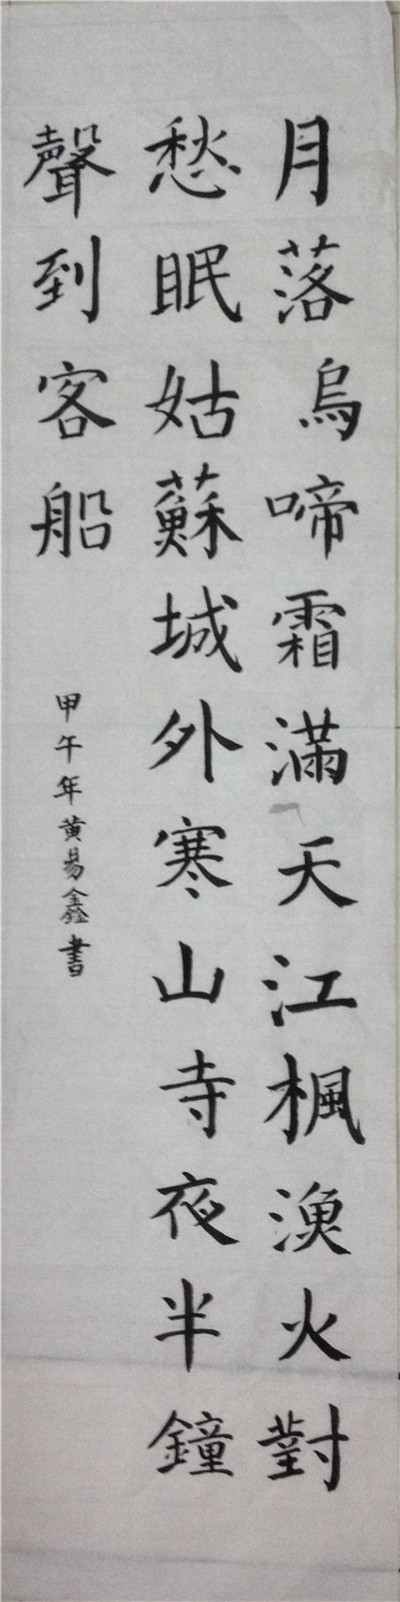 月落烏啼霜滿天江楓漁火對
愁眠姑蘇城外寒山寺夜半鐘
聲到客船
甲午年黃易鑫書